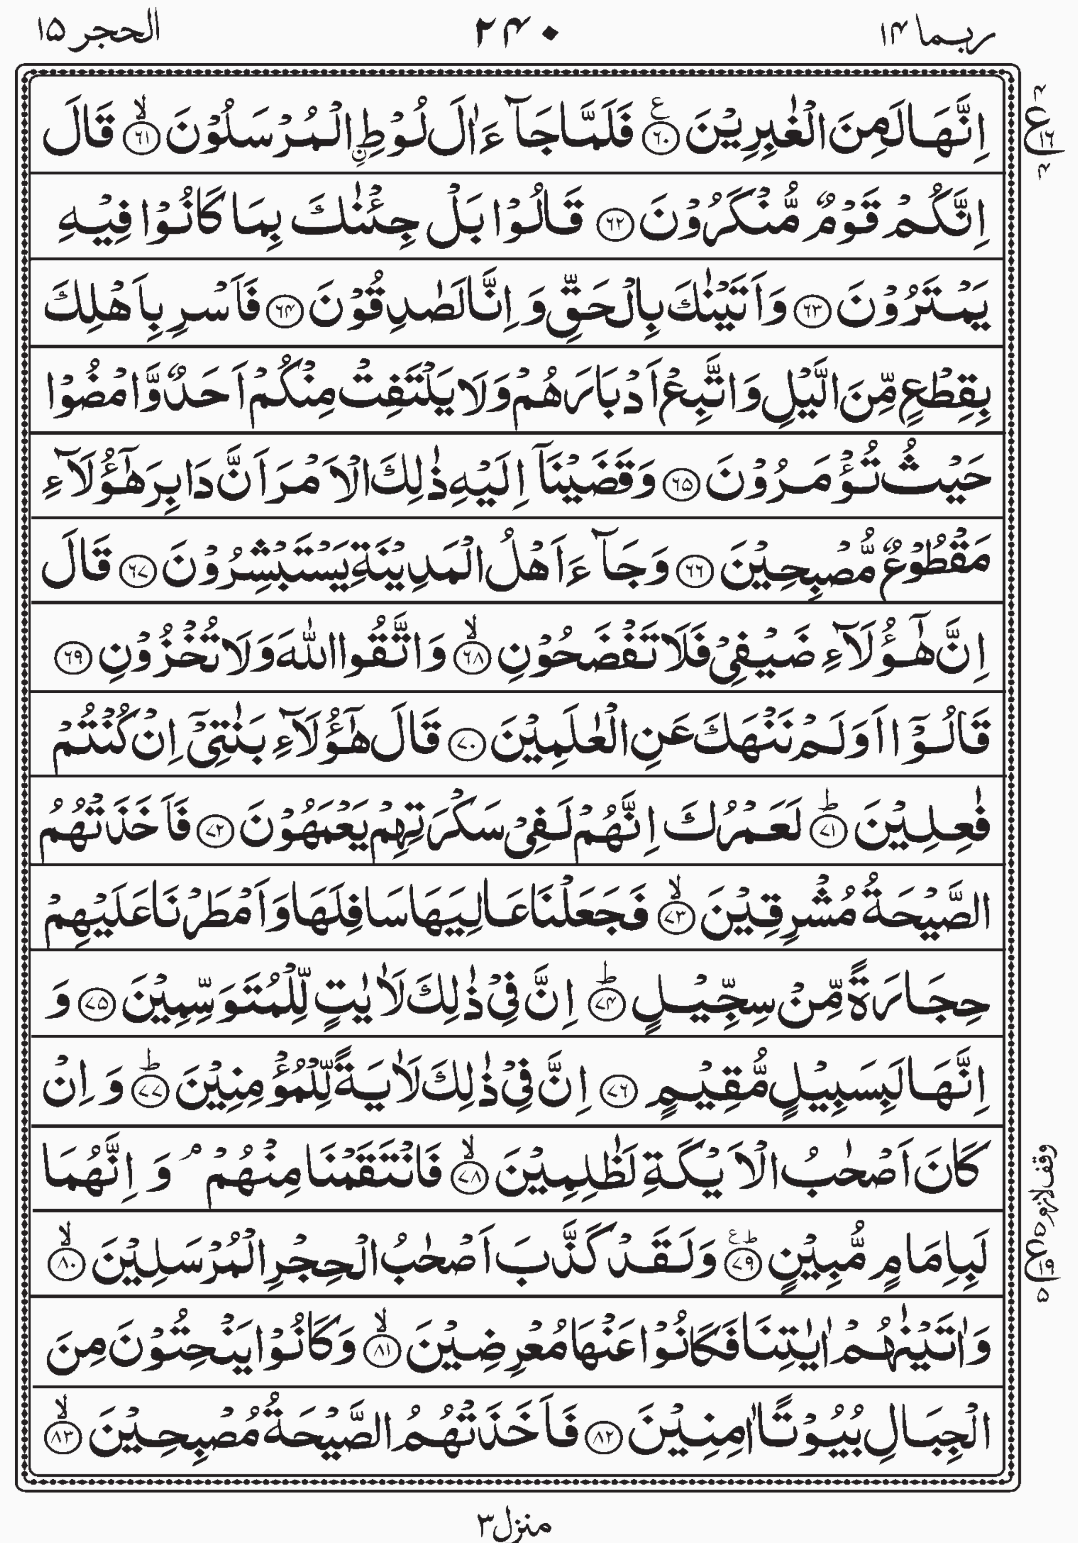 ربما ۱۴ ۲۴۰ الحجر ۱۵
اِنَّهَا لَمِنَ الْغٰبِرِيْنَ ۶۰ ع فَلَمَّا جَآءَ اٰلَ لُوْطِ ࣙالْمُرْسَلُوْنَ ۶۱ ۙ قَالَ
ع ۱۶ ۴ ۴
اِنَّكُمْ قَوْمٌ مُّنْكَرُوْنَ ۶۲ قَالُوْا بَلْ جِئْنٰكَ بِمَا كَانُوْا فِيْهِ
يَمْتَرُوْنَ ۶۳ وَاَتَيْنٰكَ بِالْحَقِّ وَ اِنَّا لَصٰدِقُوْنَ ۶۴ فَاَسْرِ بِاَهْلِكَ
بِقِطْعٍ مِّنَ الَّيْلِ وَاتَّبِعْ اَدْبَارَهُمْ وَلَا يَلْتَفِتْ مِنْكُمْ اَحَدٌ وَّامْضُوْا
حَيْثُ تُؤْمَرُوْنَ ۶۵ وَقَضَيْنَآ اِلَيْهِ ذٰلِكَ الْاَمْرَ اَنَّ دَابِرَ هٰٓؤُلَآءِ
مَقْطُوْعٌ مُّصْبِحِيْنَ ۶۶ وَجَآءَ اَهْلُ الْمَدِيْنَةِ يَسْتَبْشِرُوْنَ ۶۷ قَالَ
اِنَّ هٰٓؤُلَآءِ ضَيْفِيْ فَلَا تَفْضَحُوْنِ ۶۸ ۙ وَاتَّقُوا اللّٰهَ وَلَا تُخْزُوْنِ ۶۹
قَالُوْٓا اَوَلَمْ نَنْهَكَ عَنِ الْعٰلَمِيْنَ ۷۰ قَالَ هٰٓؤُلَآءِ بَنٰتِيْٓ اِنْ كُنْتُمْ
فٰعِلِيْنَ ۷۱ ؕ لَعَمْرُكَ اِنَّهُمْ لَفِيْ سَكْرَتِهِمْ يَعْمَهُوْنَ ۷۲ فَاَخَذَتْهُمُ
الصَّيْحَةُ مُشْرِقِيْنَ ۷۳ ۙ فَجَعَلْنَا عَالِيَهَا سَافِلَهَا وَاَمْطَرْنَا عَلَيْهِمْ
حِجَارَةً مِّنْ سِجِّيْلٍ ۷۴ ؕ اِنَّ فِيْ ذٰلِكَ لَاٰيٰتٍ لِّلْمُتَوَسِّمِيْنَ ۷۵ وَ
اِنَّهَا لَبِسَبِيْلٍ مُّقِيْمٍ ۷۶ اِنَّ فِيْ ذٰلِكَ لَاٰيَةً لِّلْمُؤْمِنِيْنَ ۷۷ ؕ وَ اِنْ
كَانَ اَصْحٰبُ الْاَيْكَةِ لَظٰلِمِيْنَ ۷۸ ۙ فَانْتَقَمْنَا مِنْهُمْ ۘ وَ اِنَّهُمَا
وقف لازم
لَبِاِمَامٍ مُّبِيْنٍ ۷۹ ؕع وَلَقَدْ كَذَّبَ اَصْحٰبُ الْحِجْرِ الْمُرْسَلِيْنَ ۸۰ ۙ
وَاٰتَيْنٰهُمْ اٰيٰتِنَا فَكَانُوْا عَنْهَا مُعْرِضِيْنَ ۸۱ ۙ وَكَانُوْا يَنْحِتُوْنَ مِنَ
الْجِبَالِ بُيُوْتًا اٰمِنِيْنَ ۸۲ فَاَخَذَتْهُمُ الصَّيْحَةُ مُصْبِحِيْنَ ۸۳ ۙ
منزل ۳